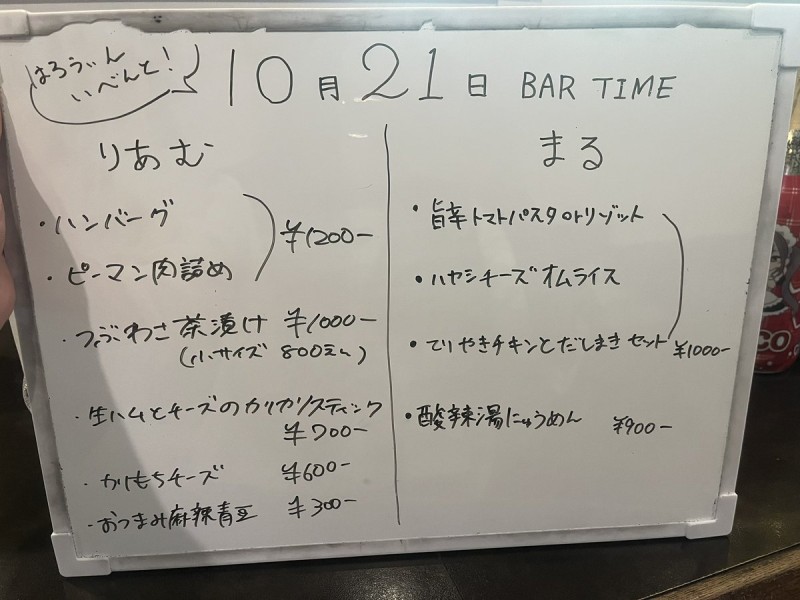 はろうぃん
いべんと!
10月21日 BAR TIME
りあむ
・ハンバーグ
・ピーマン肉詰め
¥1200-
・つぶわさ茶漬け ¥1000-
(小サイズ 800えん)
・生ハムとチーズのカリカリスティック
¥700-
・かりもちチーズ ¥600-
・おつまみ麻辣青豆 ¥300-
まる
・旨辛トマトパスタorリゾット
・ハヤシチーズオムライス
・てりやきチキンとだしまきセット ¥1000-
・酸辣湯にゅうめん ¥900-
CO